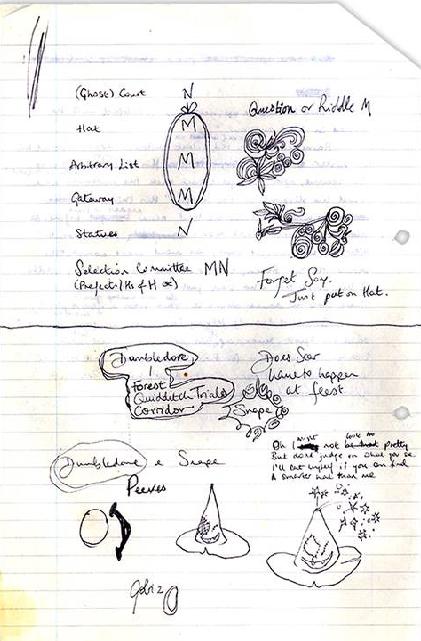 (Ghost) Court N
Hat M
Arbitrary List M
Gateway M
Statues N
Question or Riddle M
Selection Committee MN
(Prefect / Hs of H
Forget Say.
Just put on Hat.
Dumbledore
1.
Forest
Quidditch Trials
Corridor
Snape
Does Scar
have to happen
at feast
Dumbledore & Snape
Peeves
Oh I might not look pretty
But don't judge on what you see
I'll eat myself if you can find
A smarter hat than me